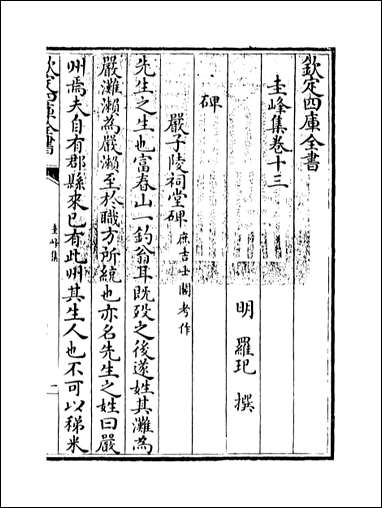 欽定四庫全書
圭峰集卷十三
明 羅玘 撰
碑
嚴子陵祠堂碑庶吉士閣考作
先生之生也富春山一釣翁耳既歿之後遂姓其灘為
嚴灘瀨為嚴瀨至於職方所統也亦名先生之姓曰嚴
州焉夫自有郡縣來已有此州其生人也不可以稊米
欽定四庫全書
圭峰集
一